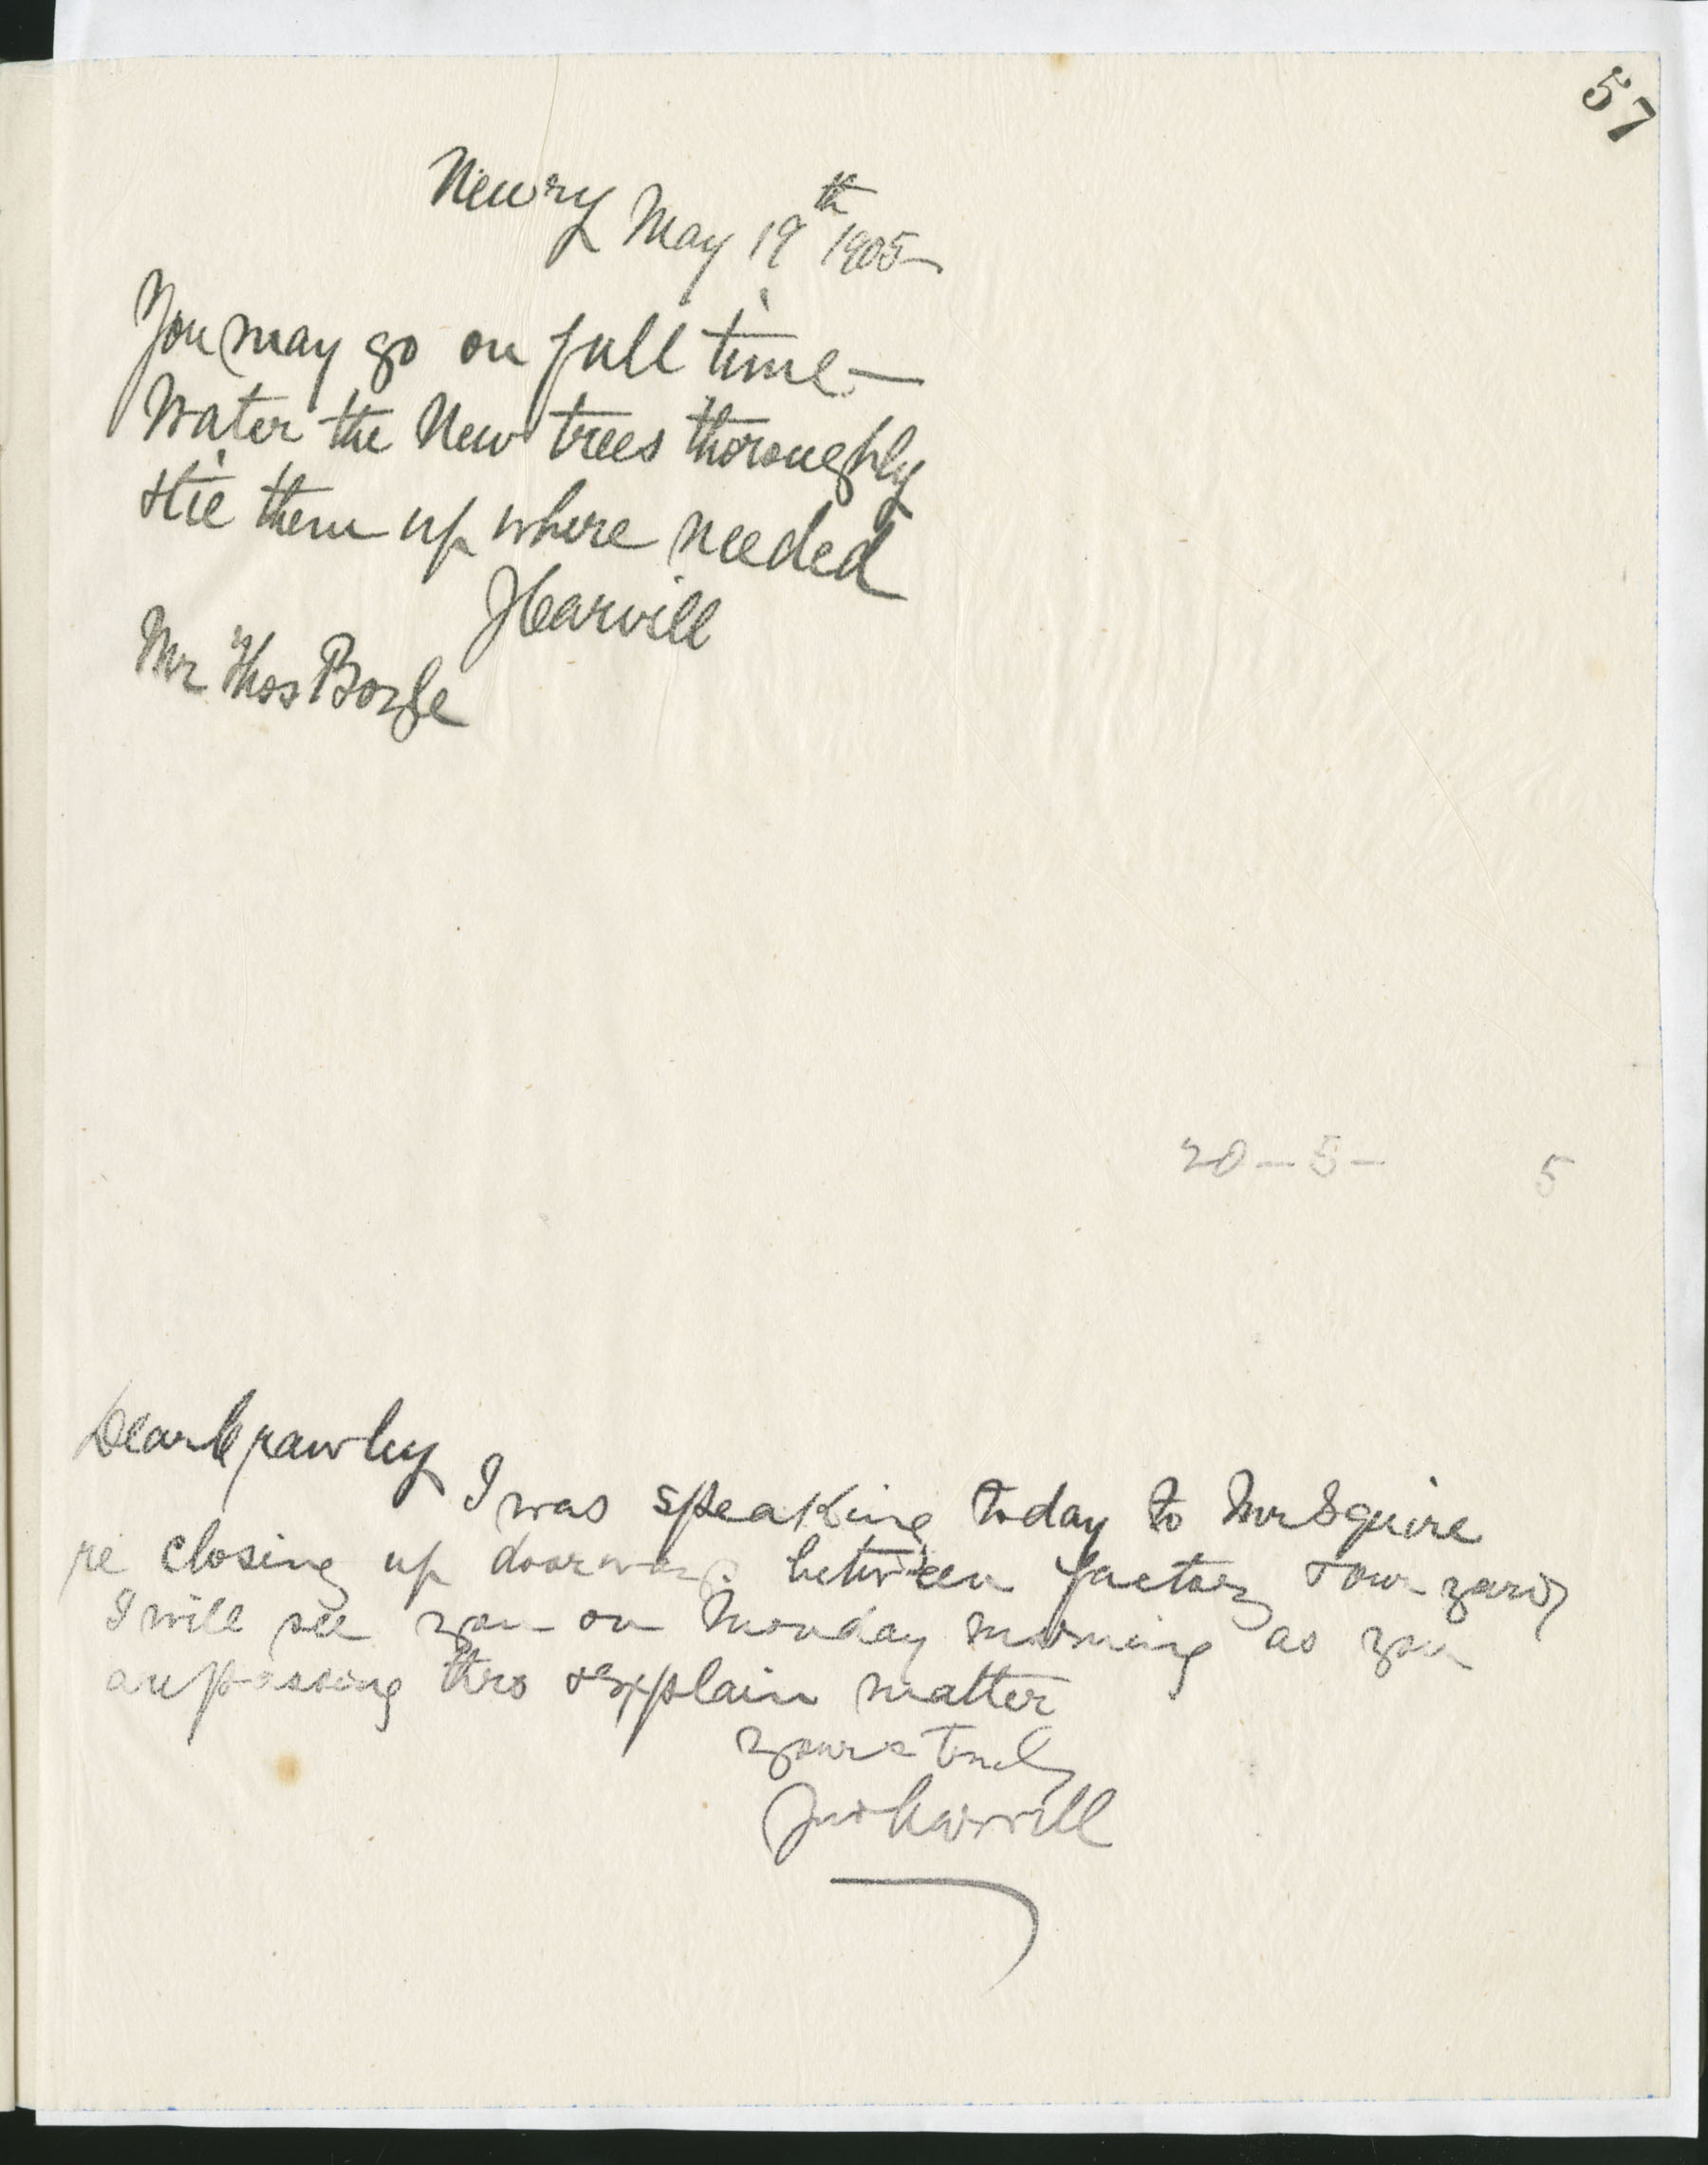 57
Newry May 19th 1905
You may go on full time —
Water the New trees thoroughly
& tie them up where needed
JCarvill
Mr Thos Boyle
20 - 5 - 5
Dear Crawley
I was speaking today to Mr Squire
re closing up doorway between factory & our yard,
I will see you on Monday morning as you
are passing thro & explain matter
yours truly
Jno Carvill